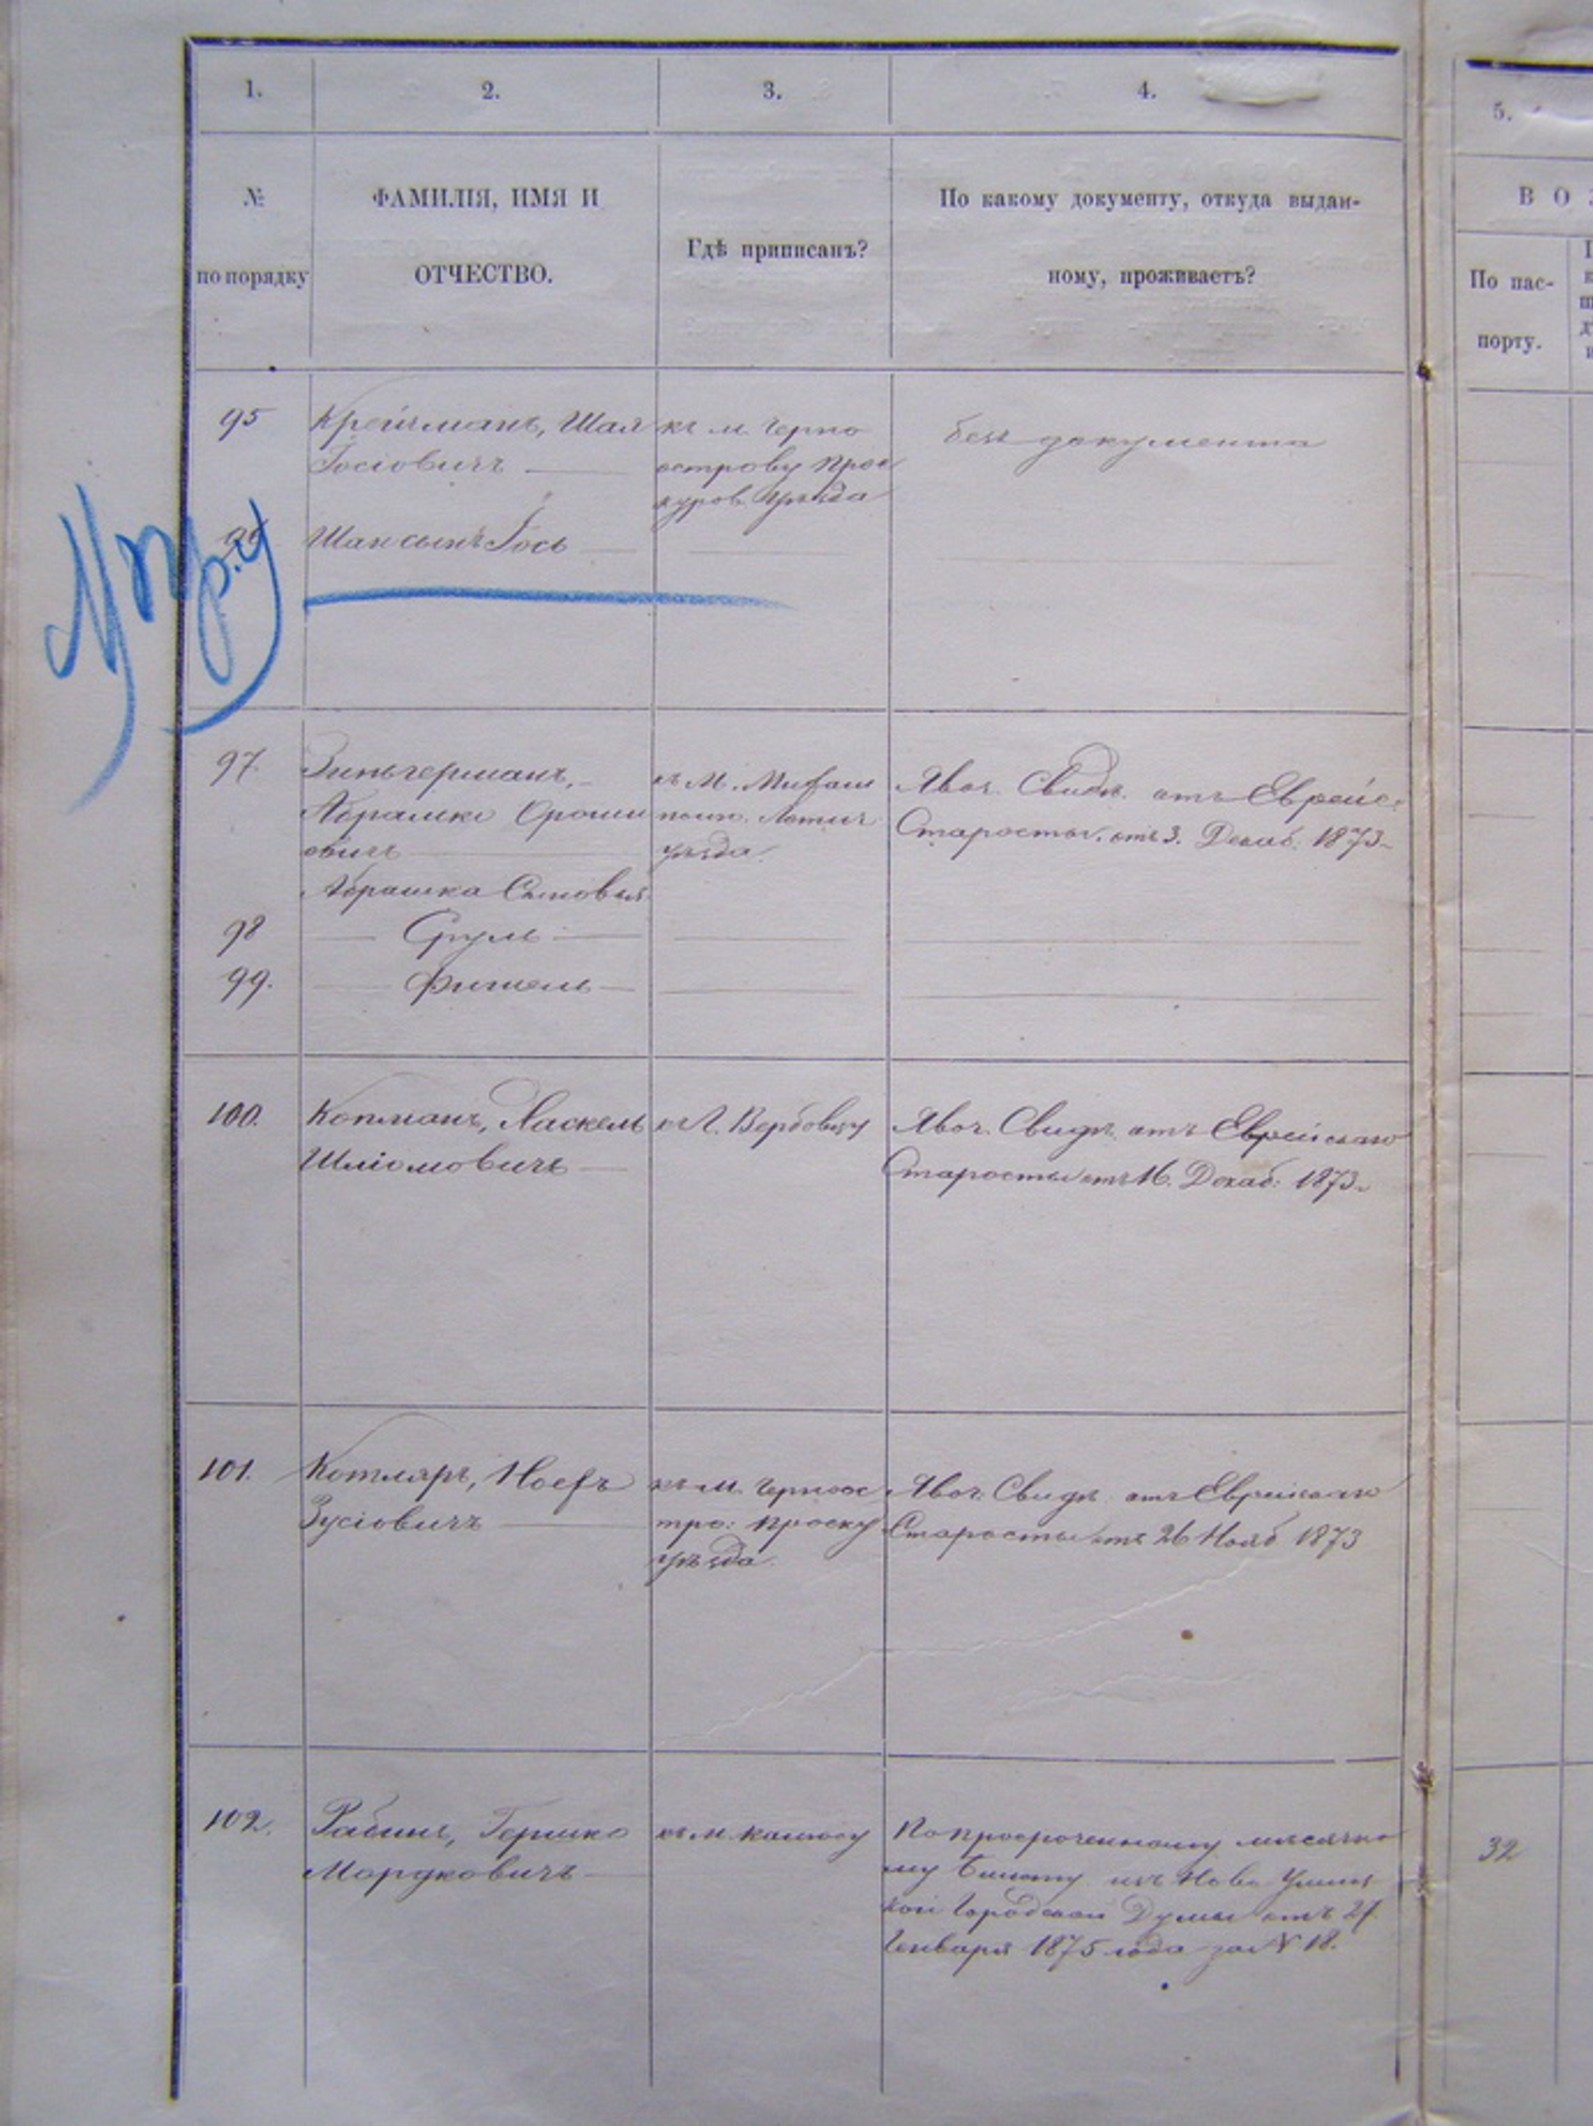 1.
2.
3.
4.
5.
№
по порядку
ФАМИЛІЯ, ИМЯ И
ОТЧЕСТВО.
Гдѣ приписанъ?
По какому документу, откуда выдан-
ному, проживаетъ?
ВОЗ
По пас-
порту.
95
Крейзманъ, Шая
Іосіовичъ
къ м. Черно
острову Прос
куров. уѣзда
безъ документа
96
Шаи сынъ Іось
97.
Зиньгерманъ,
Абрамко Сроши
овичъ
Абрашка Сыновья
къ М.
поит. Летич
уѣзда
Явоч. Свидѣ. отъ Еврейс.
Старосты. отъ 3. Декаб. 1873
98
Сруль
99.
Фишель
100.
Котманъ, Хаскель
Шліомовичъ
къ Л. Вербовцу
Явоч. Свидѣ. отъ Еврейскаго
Старосты отъ 16. Декаб: 1873
101.
Котляръ, Іосефъ
Зусіовичъ
къ м. Черноос
тро: Проску
уѣзда
Явоч. Свидѣ. отъ Еврейскаго
Старосты отъ 26 Нояб 1873
102.
Рабинъ, Гершко
Мордковичъ
къ м. Калюсу
По просроченному мѣсячно
му билету изъ Ново Ушиц
кой Городской Думы отъ 21
Генваря 1875 года за № 18.
32